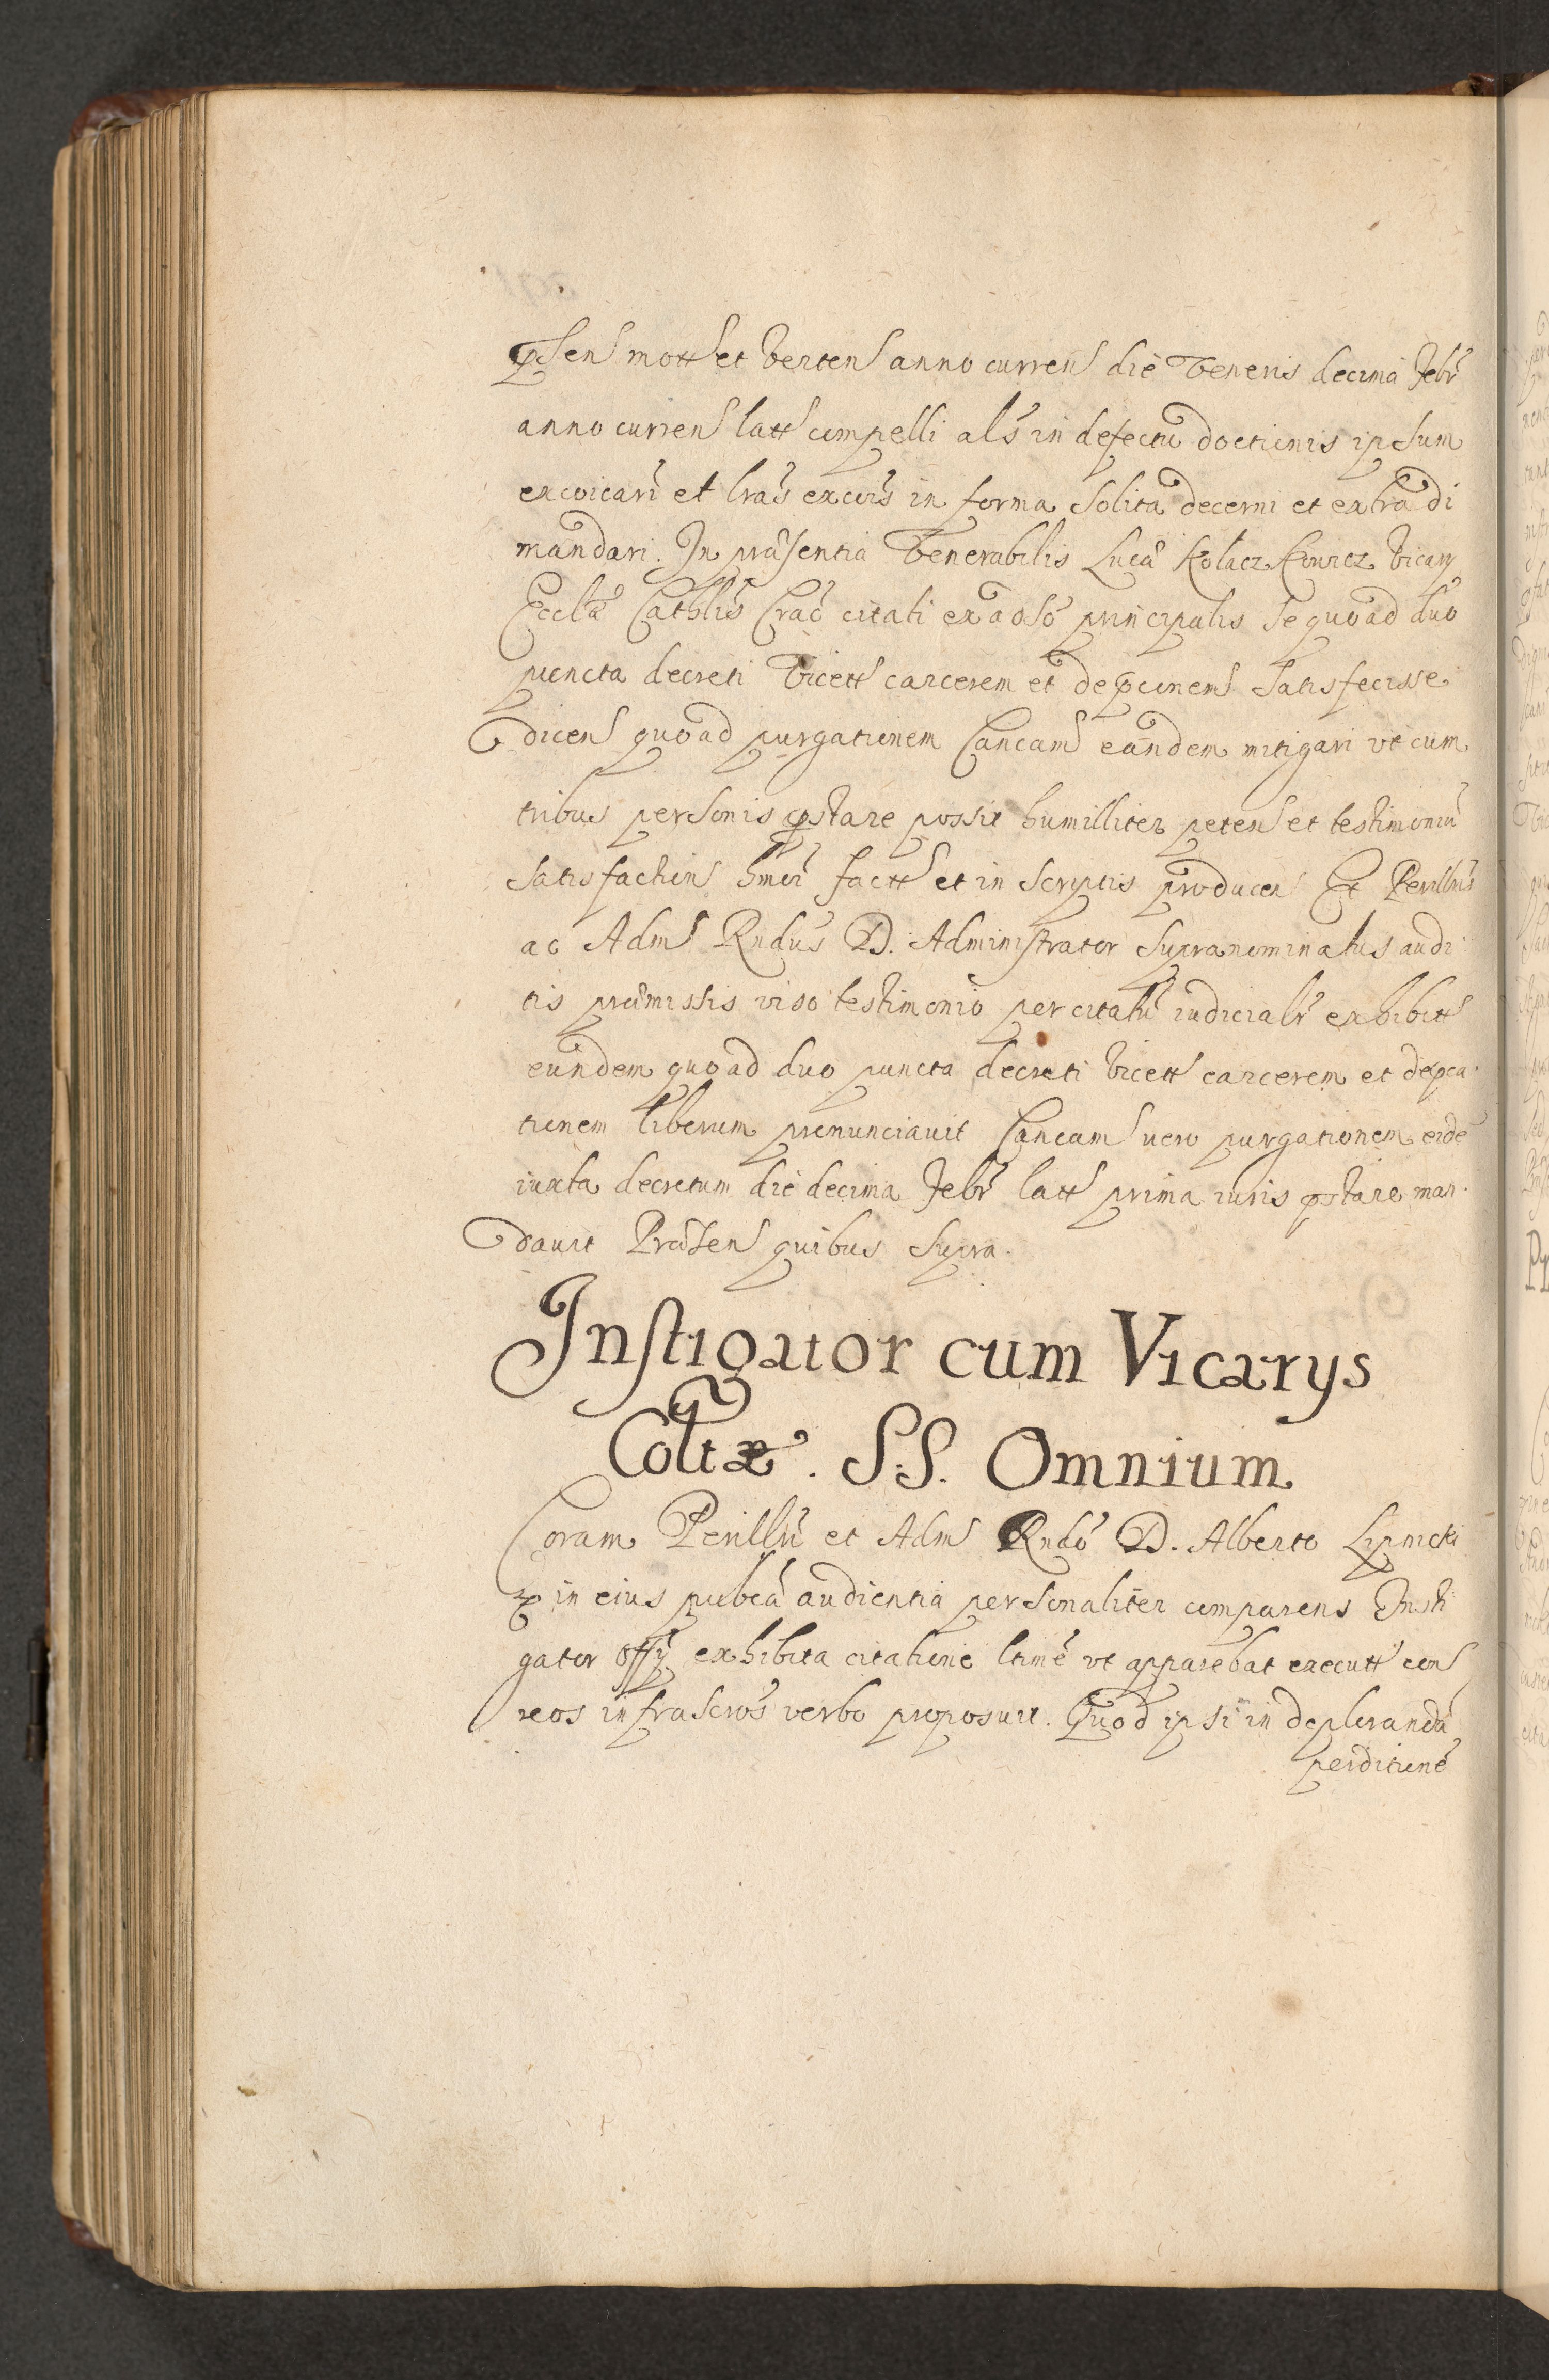 pſens mott et verten anno curren die Veneris decima Febr
anno curren latt compelli als in defectu doctionis ipsum
excoicari et lras excois in forma solita decerni et extradi
mandari. In præsentia Venerabilis Lucæ Kołaczkowicz Vicarij
Ecclæ Cathlis Crac citati ex adso principalis se quoad duo
puncta decreti vicett carcerem et depconem satisfecisse
dicens quoad purgationem Caneam eandem mitigari vt cum
tribus personis pstare possit humilliter petens et testimoniu
satisfactins hmoi factt et in scriptis producen Et Perillris
ac Adm Rndus D. Administrator supranominatus audi
tis præmissis viso testimonio per citatu iudicialr exhibitt
eundem quoad duo puncta decreti vicett carcerem et depca
tionem liberum pronunciauit Caneam vero purgationem eide
iuxta decretum die decima Febr latt prima iuris pstare man
dauit Præsen quibus supra.
Instigator cum Vicarijs
Coltæ. S.S. Omnium
Coram Perillri et Adm Rndo D. Alberto Lipnicki
in eius publca audientia personaliter comparens Insti
gator Offij exhibita citatione ltime vt apparebat executt con
reos infrascros verbo proposuit. Quod ipsi in deploranda
perditione